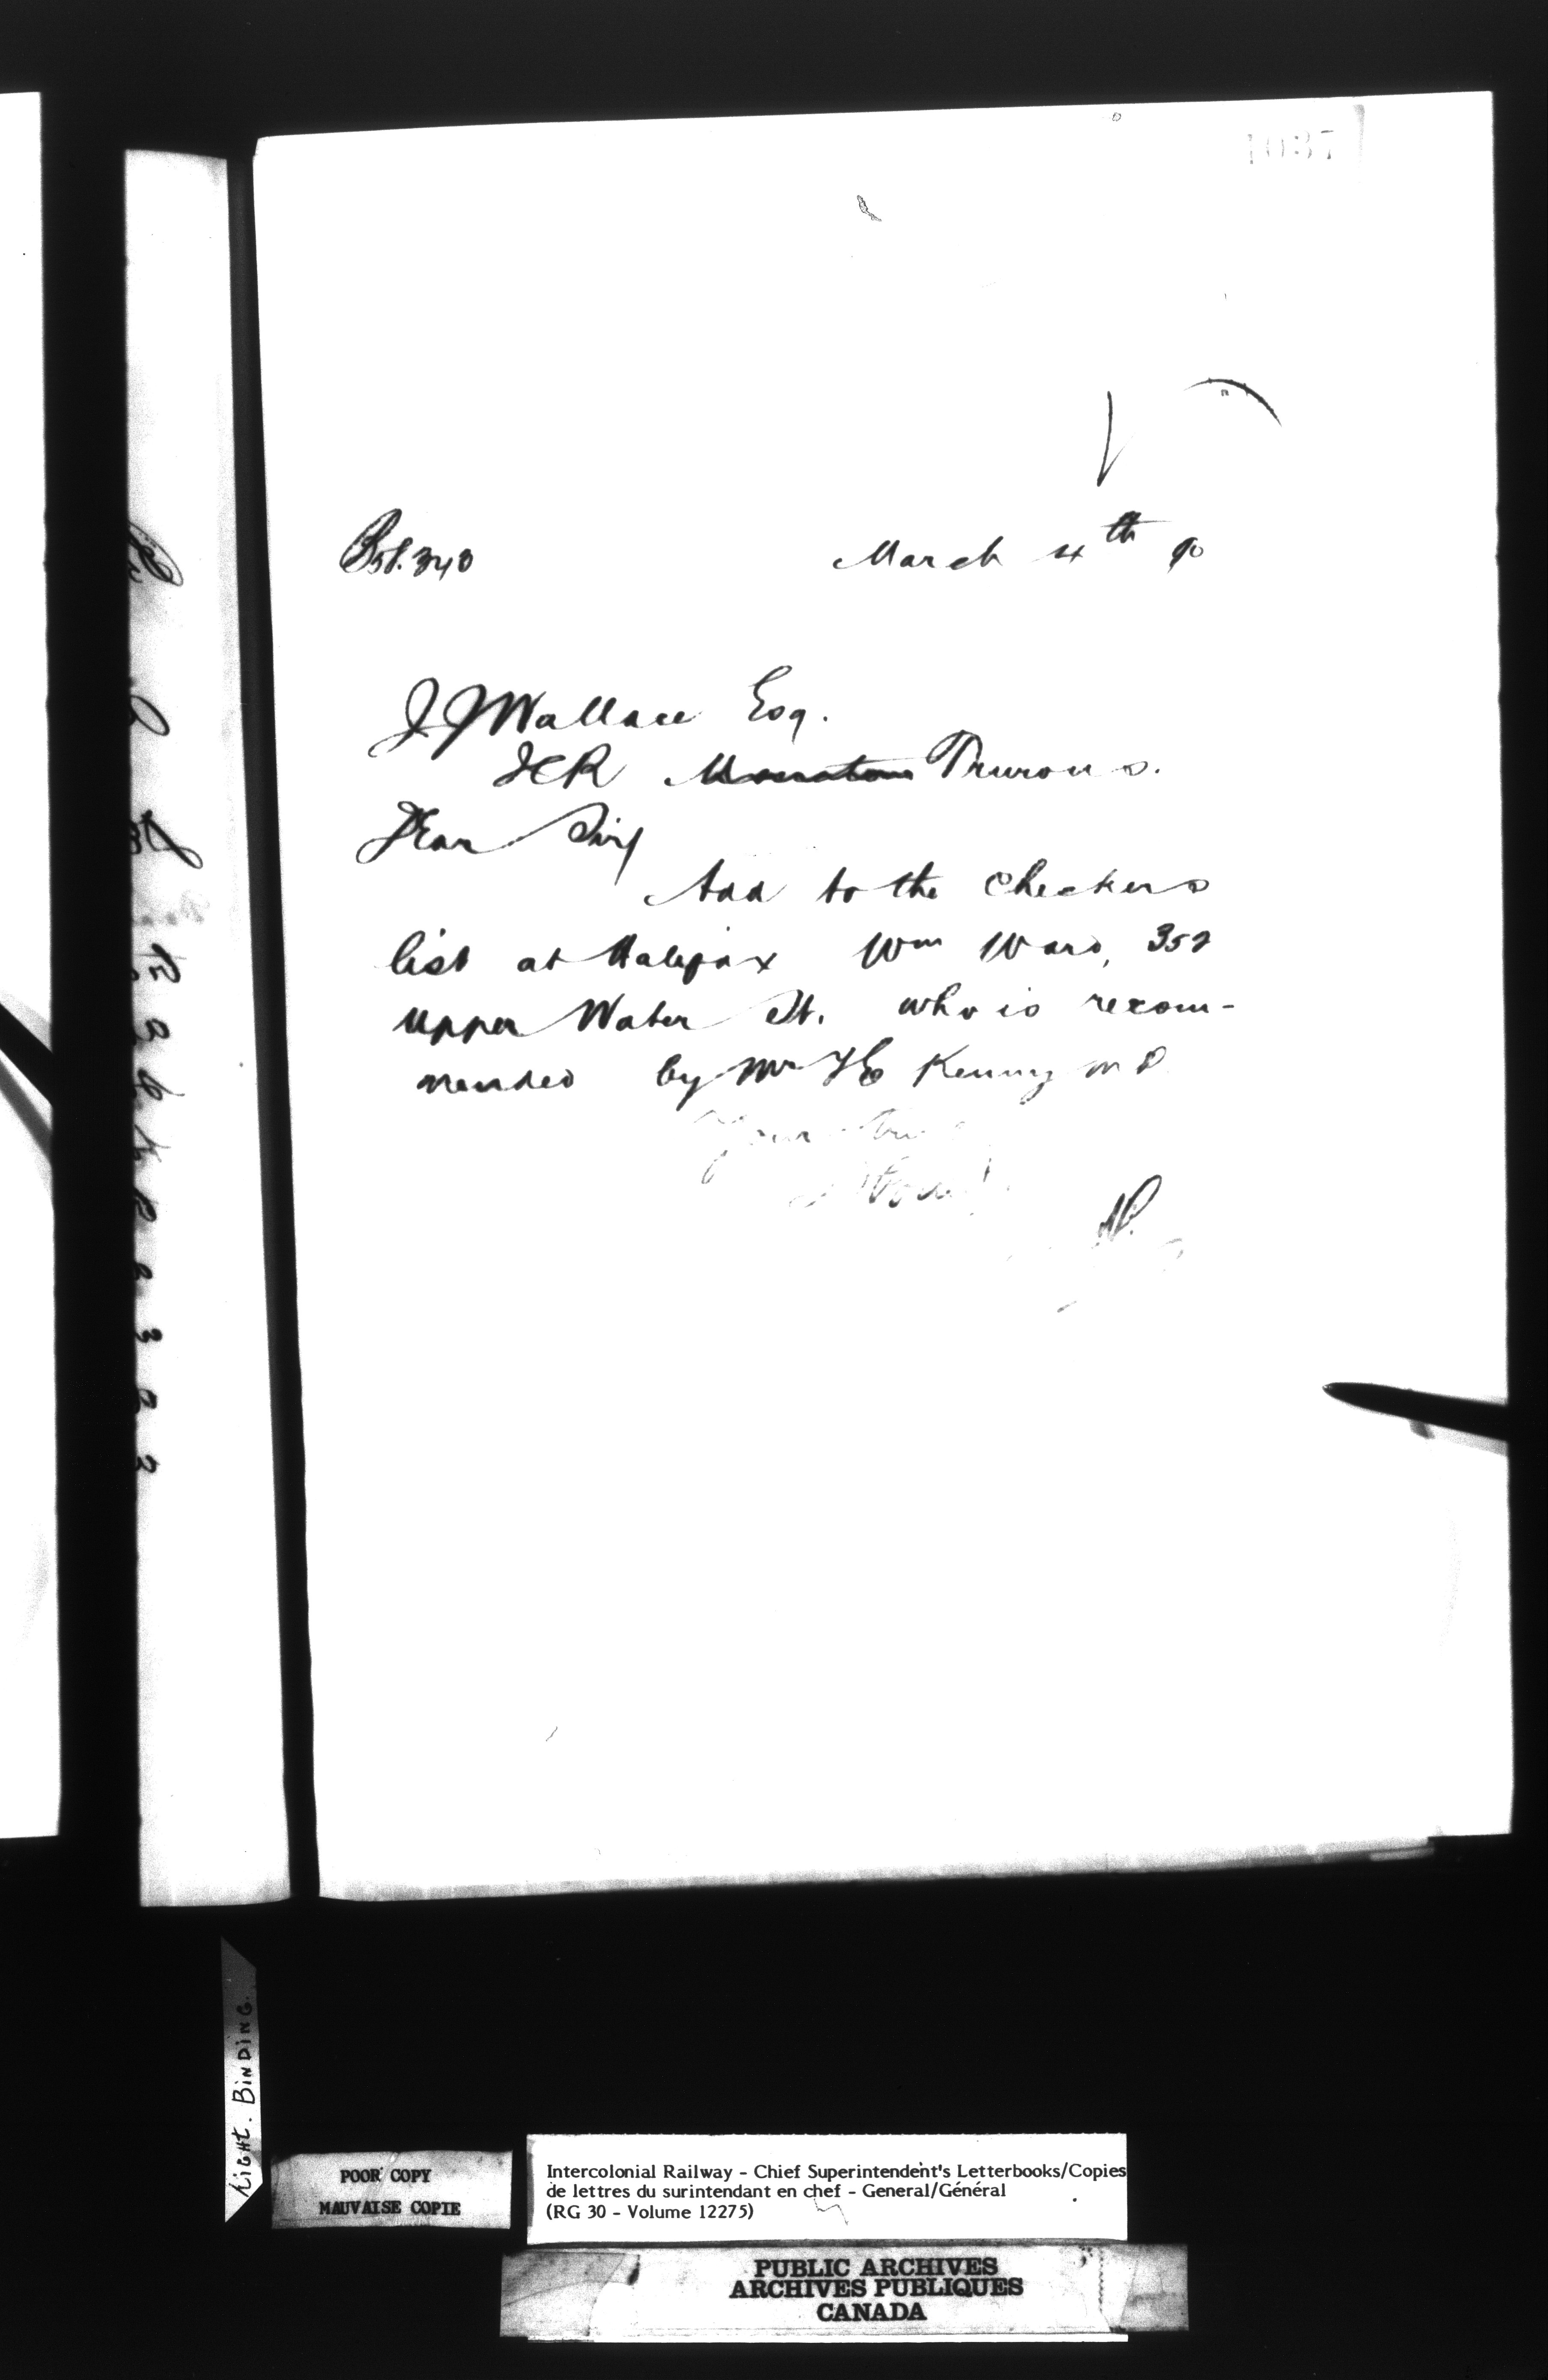 1037
March 4th 90
J J Wallace Esq.
ICR Moncton Truro N S.
Dear Sir/
Add to the Checkers
list at Halifax Wm Ward, 352
Upper Water St. who is recom-
mended by Mr T E Kenny M P
Yours
LIGHT. BINDING.
POOR COPY
MAUVAISE COPIE
Intercolonial Railway - Chief Superintendent's Letterbooks/Copies
de lettres du surintendant en chef - General/Général
(RG 30 - Volume 12275)
PUBLIC ARCHIVES
ARCHIVES PUBLIQUES
CANADA